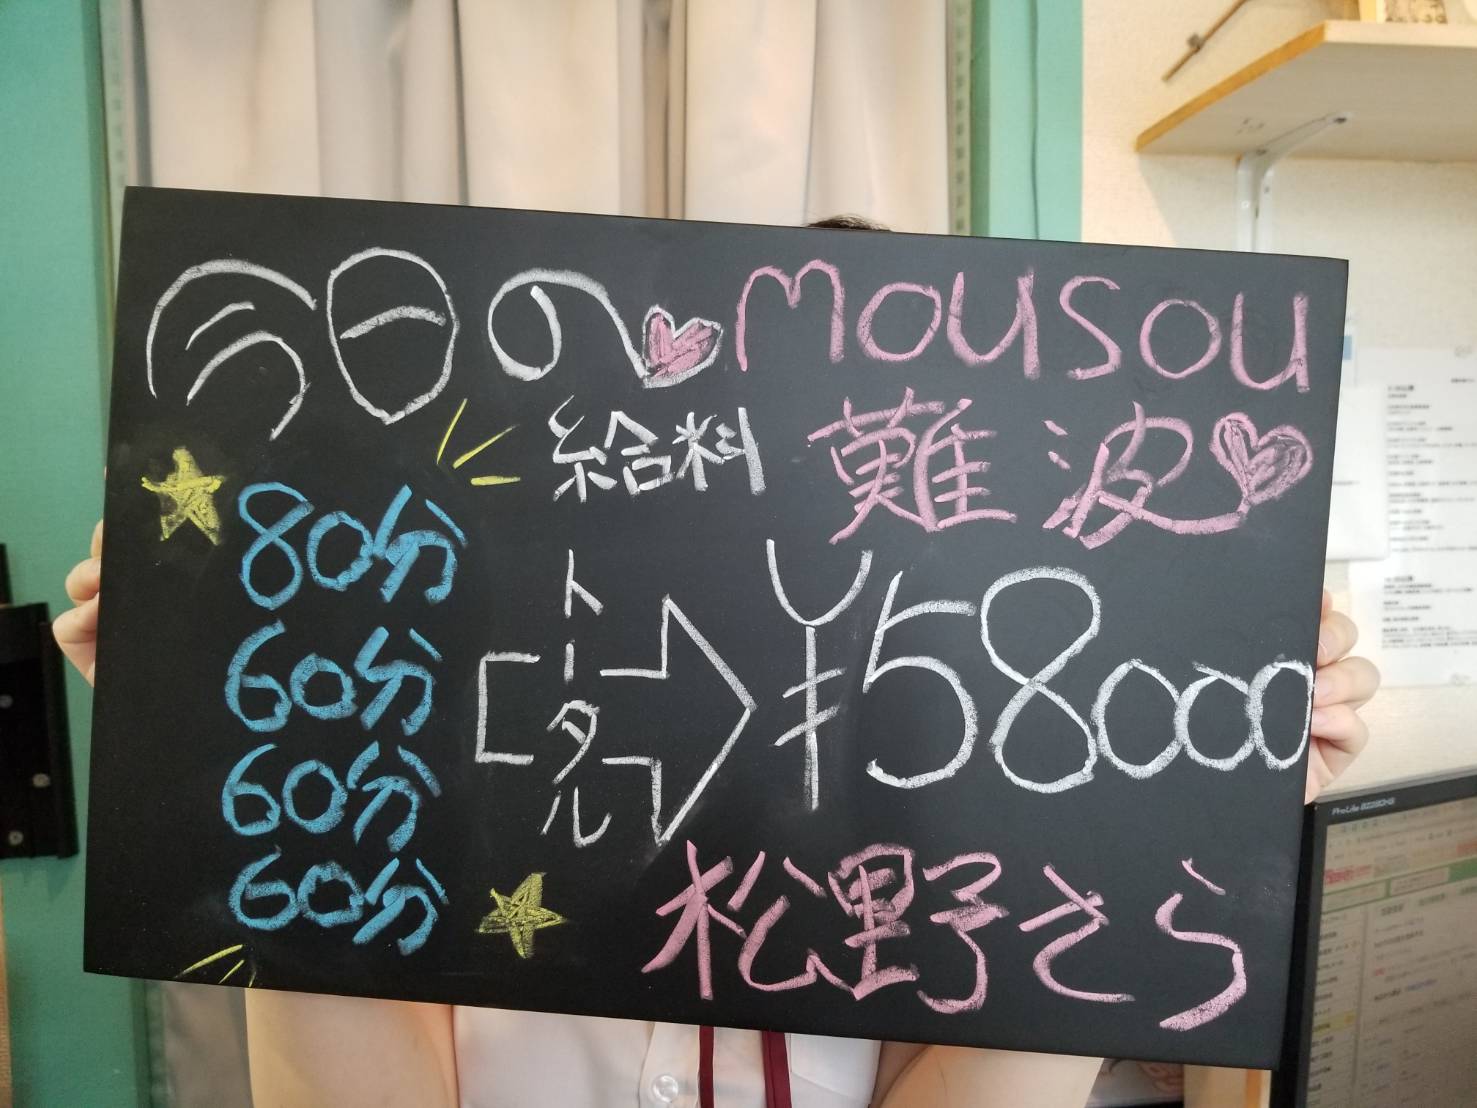 今日の mousou
給料 難波
80分
60分
60分
60分
トータル
¥58000
松野さら
ProLite B2280HS